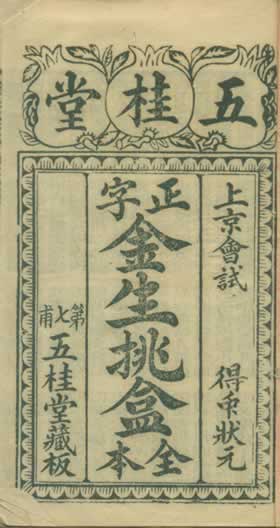 五桂堂
上京會試 得中狀元
正字
金生挑盒
全本
第七甫
五桂堂藏板